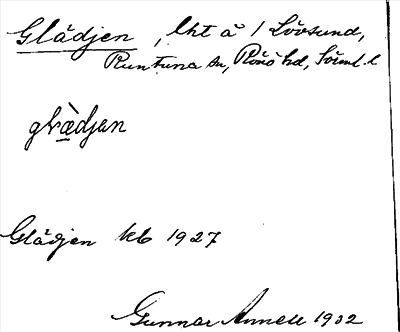 Glädjen, lht å / Lövsund,
Runtuna sn, Rönö hd, Söml. l
glä̀djen
Glädjen kb 1927
Gunnar Annell 1932